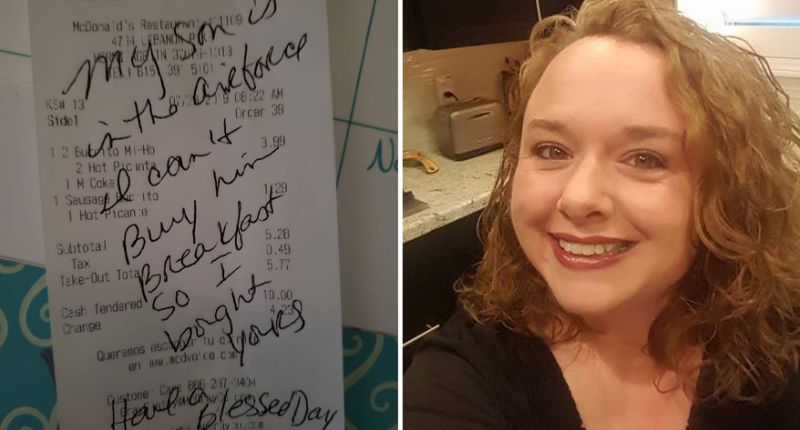 McDonald's Restaurant 1109
4734 LEBANON
TN
615 39 5101
KS# 13
08:22 AM
Side1
Order 39
1 2 Burrito Ml-Hb
3.99
2 Hot Picante
1 M Coke
1 Sausage Burrito
1.29
1 Hot Picante
Subtotal
5.28
Tax
0.49
Take-Out Total
5.77
Cash Tendered
10.00
Change
4.23
Queremos tu
en www.mcdvoice.com
Custome Care 866-207-3404
My son is
in the airforce
I can't
Buy him
Breakfast
So I
bought
yours
Have a
Blessed Day